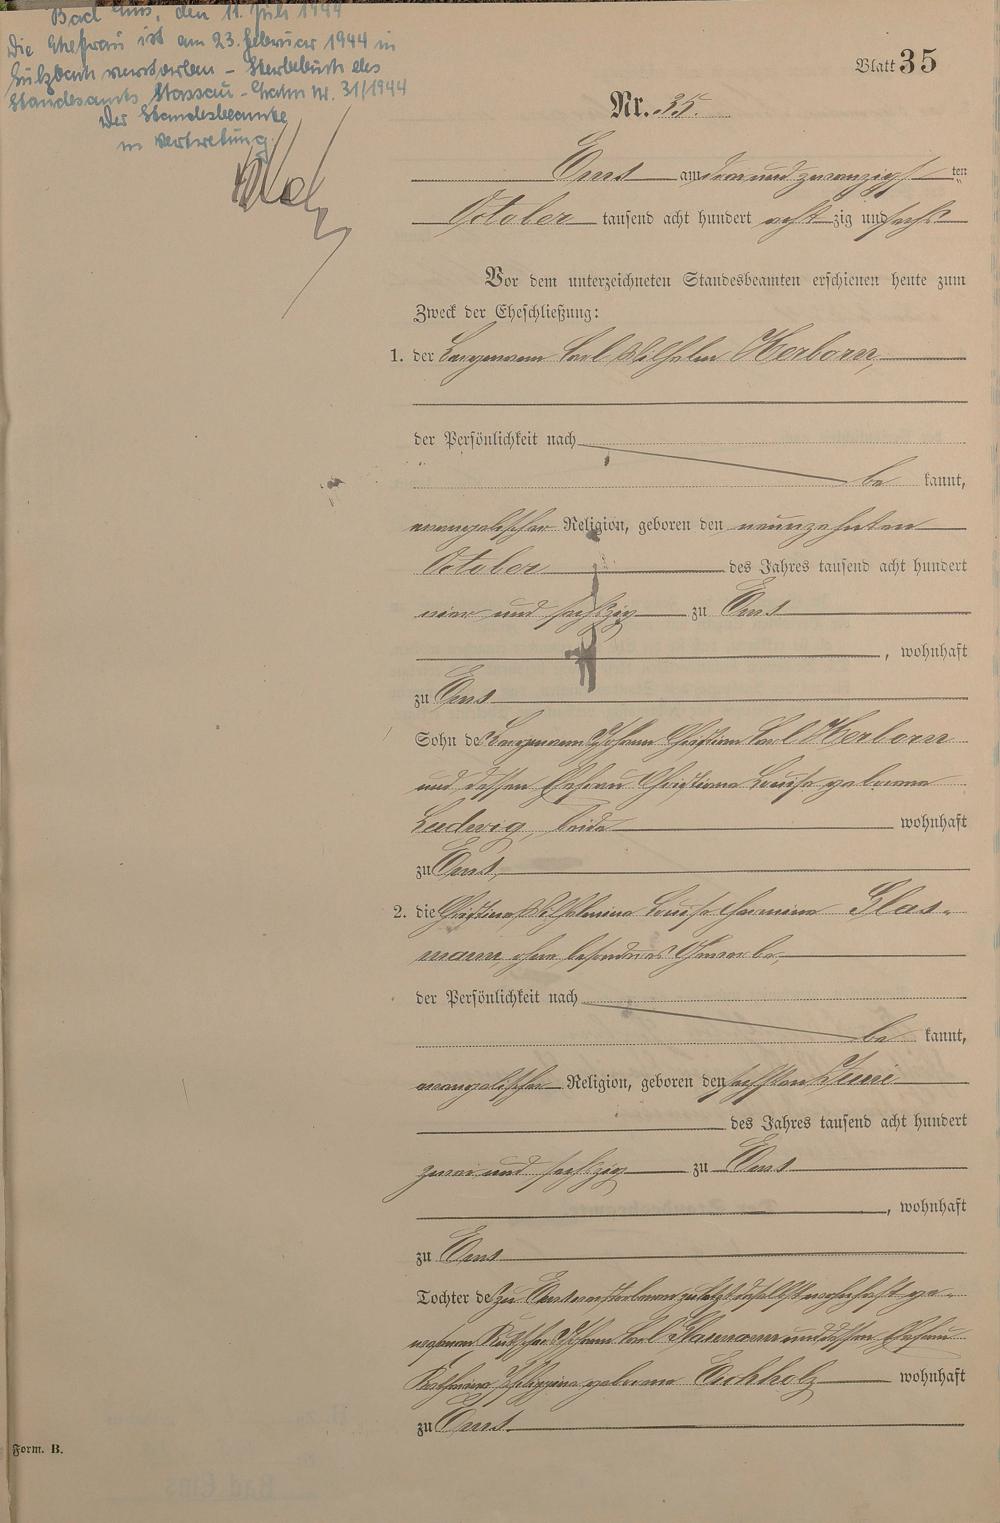 Bad Ems, den 11. Juli 1944
Die Ehefrau ist am 23. Februar 1944 in
Sulzbach verstorben – Sterbebuch des
Standesamts Nassau - Nr. 31/1944
Der Standesbeamte
in Vertretung
Blatt 35
Nr. 35.
Ems am drei und zwanzigsten
October tausend acht hundert achtzig und sechs
Vor dem unterzeichneten Standesbeamten erschienen heute zum
Zweck der Eheschließung:
1. der Bergmann Carl Wilhelm Herborn,
der Persönlichkeit nach
be kannt,
evangelischer Religion, geboren den neunzehnten
October des Jahres tausend acht hundert
vier und sechszig zu Ems
, wohnhaft
zu Ems
Sohn des Bergmann Johann Christian Carl Herborn
und dessen Ehefrau Christiane Louise geborene
Ludwig, beide wohnhaft
zu Ems,
2. die Christine Wilhelmine Louise Hermine Glas-
mann ohne besonderes Gewerbe,
der Persönlichkeit nach
be kannt,
evangelischer Religion, geboren den sechsten Juni
des Jahres tausend acht hundert
zwei und sechszig zu Ems
, wohnhaft
zu Ems
Tochter des zu Ems verstorbenen zuletzt daselbst wohnhaft ge-
wesenen Kutscher Johann Carl Glasmann und dessen Ehefrau
Philippine geborene Eichholz wohnhaft
zu Ems.
Form. B.